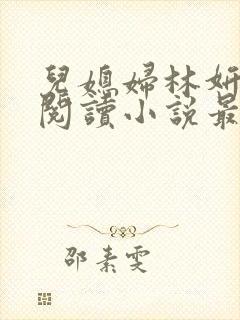 兒媳婦林妍
閱讀小說最
邵素雯